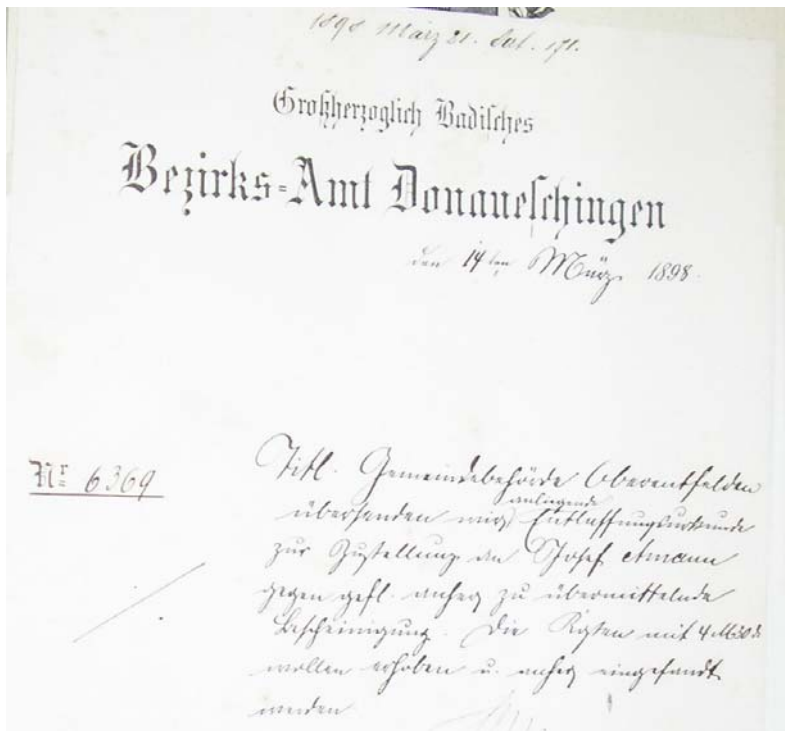 1898 März 21. Sat. 171.
Großherzoglich Badisches
Bezirks-Amt Donaueschingen
den 14ten März 1898.
Nr 6369
Titl. Gemeindebehörde Oberentfelden
übersenden wir anliegende Entlassungsurkunde
zur Zustellung an Josef Amann
gegen gefl. anher zu übermittelnde
Bescheinigung. Die Kosten mit 4 M 30 d
wollen erhoben u. anher eingesandt
werden